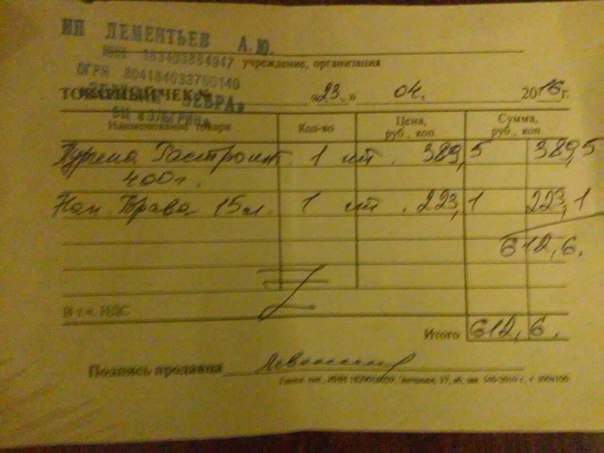 ИП ЛЕМЕНТЬЕВ А.Ю.
учреждение, организация
ОГРН 304184033700140
ТОВАРНЫЙ ЧЕК № «23» 04. 2016 г.
ЗЕБРА»
Наименование товара Кол-во Цена, руб., коп. Сумма, руб., коп.
Пурена Гастроинт 1 шт. 389,5 389,5
400г.
Нап. Трава 15л. 1 шт. 223,1 223,1
612,6.
В т.ч. НДС
Итого 612,6.
Подпись продавца